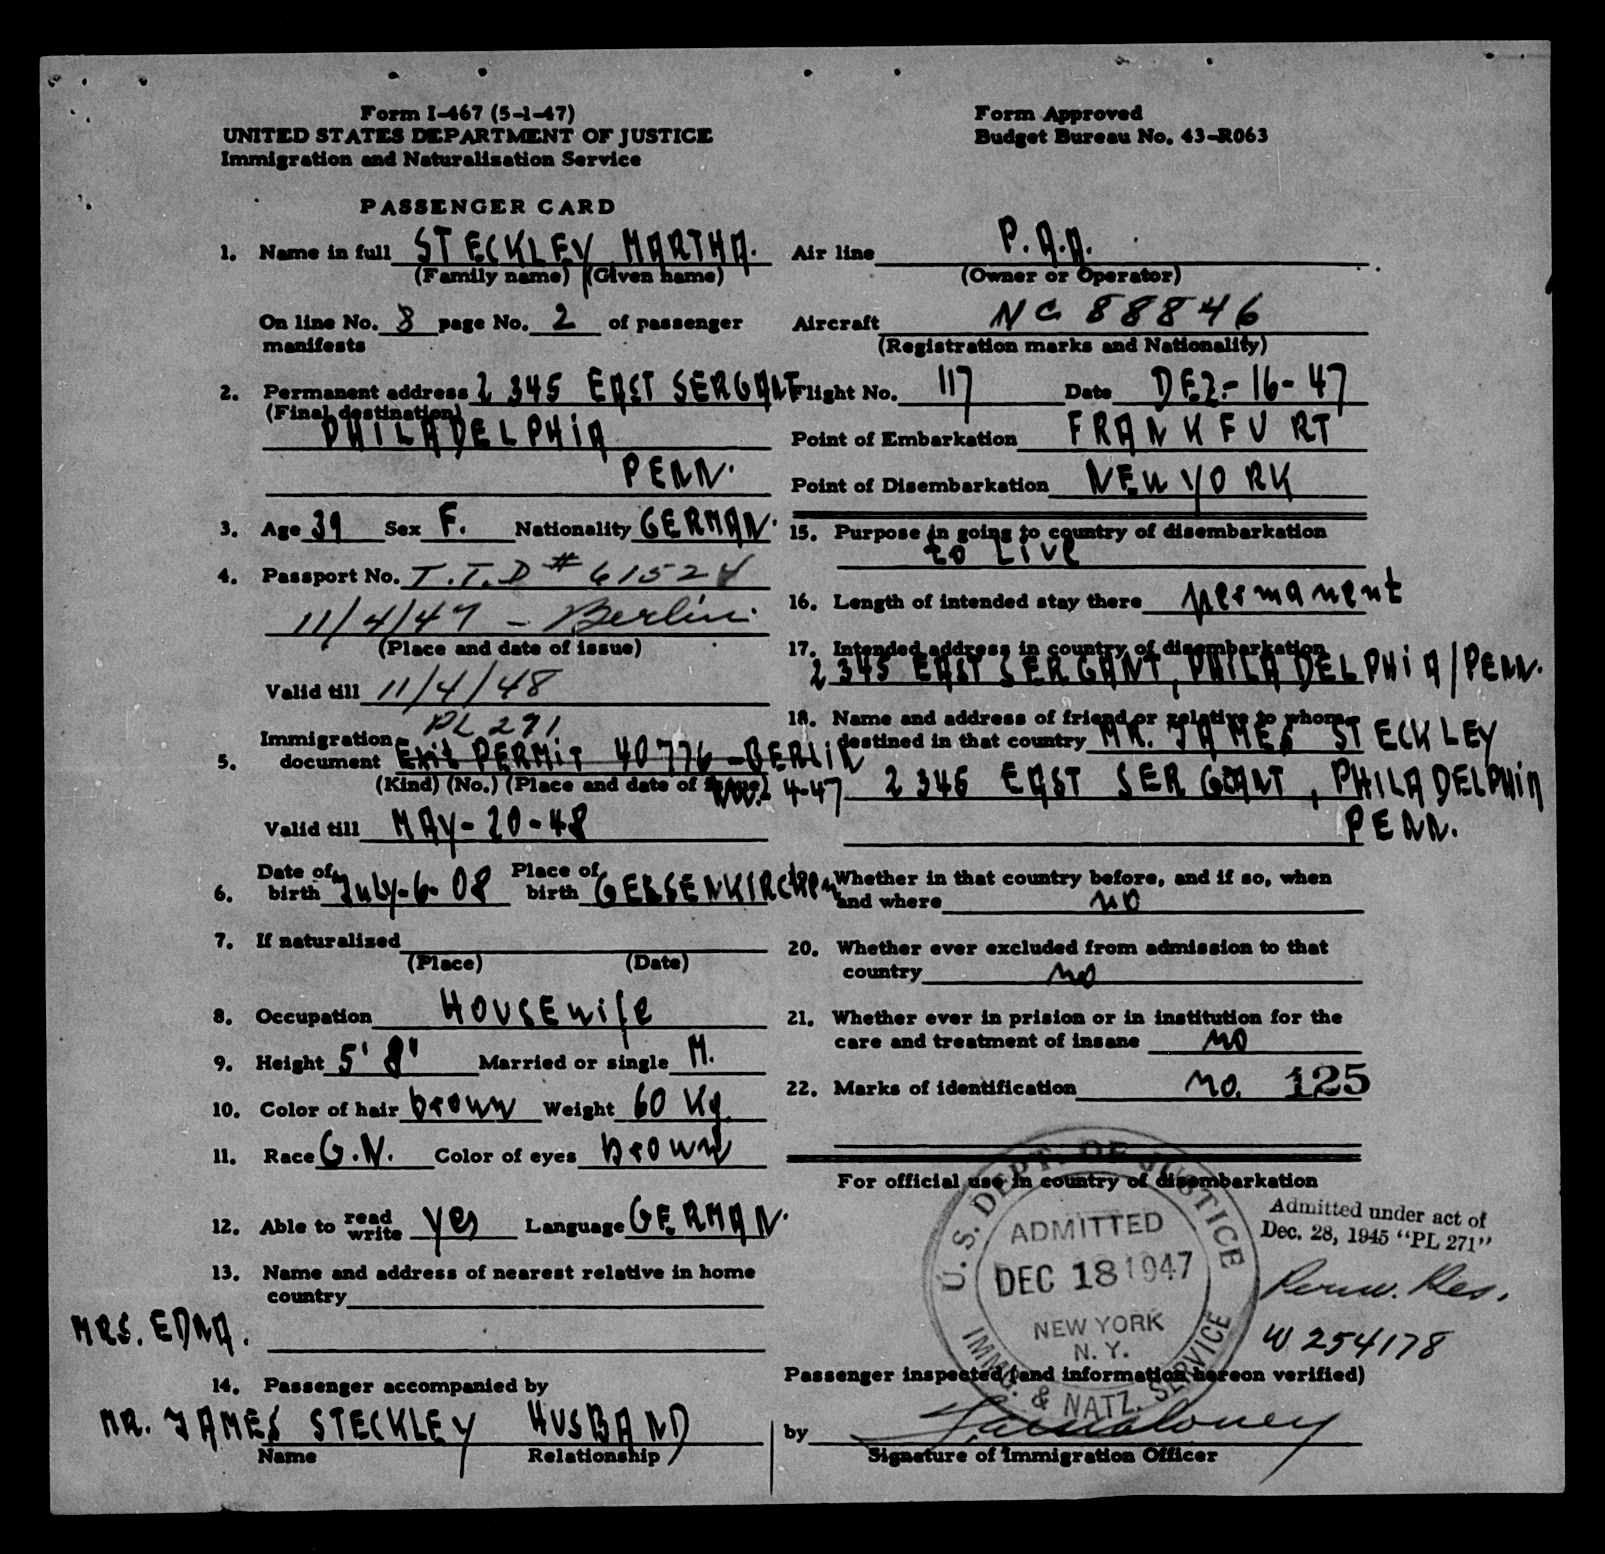 Form I-467 (5-1-47)
UNITED STATES DEPARTMENT OF JUSTICE
Immigration and Naturalization Service
Form Approved
Budget Bureau No. 43-R063
PASSENGER CARD
1. Name in full STECKLEY MARTHA.
(Family name) (Given name)
On line No. 3 page No. 2 of passenger
manifests
2. Permanent address 2345 EAST SERGANT
(Final destination)
PHILADELPHIA
PENN.
3. Age 39 Sex F. Nationality GERMAN.
4. Passport No. T.T.D # 61524
11/4/47 - Berlin.
(Place and date of issue)
Valid till 11/4/48
PL 271
5. Immigration
document Exit PERMIT 40776-BERLIN
(Kind) (No.) (Place and date of issue) 4-47
Valid till MAY-20-48
6. Date of
birth July-6-08 Place of
birth GELSENKIRCHEN
7. If naturalized
(Place) (Date)
8. Occupation HOUSEwife
9. Height 5' 8' Married or single M.
10. Color of hair brown Weight 60 Kg.
11. Race G.N. Color of eyes brown
12. Able to read
write yes Language GERMAN.
13. Name and address of nearest relative in home
country
MRS. EDNA.
14. Passenger accompanied by
MR. JAMES STECKLEY HUSBAND
Name Relationship
Air line P.A.A.
(Owner or Operator)
Aircraft NC 88846
(Registration marks and Nationality)
Flight No. 117 Date DEZ.-16-47
Point of Embarkation FRANKFURT
Point of Disembarkation NEW YORK
15. Purpose in going to country of disembarkation
to Live
16. Length of intended stay there permanent
17. Intended address in country of disembarkation
2345 EAST SERGANT, PHILADELPHIA/PENN.
18. Name and address of friend or relative to whom
destined in that country MR. JAMES STECKLEY
2345 EAST SERGANT, PHILADELPHIA
PENN.
Whether in that country before, and if so, when
and where no
20. Whether ever excluded from admission to that
country no
21. Whether ever in prision or in institution for the
care and treatment of insane no
22. Marks of identification no. 125
For official use in country of disembarkation
U.S. DEPT. OF JUSTICE
ADMITTED
DEC 18 1947
NEW YORK
N. Y.
IMM. & NATZ. SERVICE
Admitted under act of
Dec. 28, 1945 "PL 271"
Perm. Res.
W 254178
Passenger inspected (and information hereon verified)
by
Signature of Immigration Officer